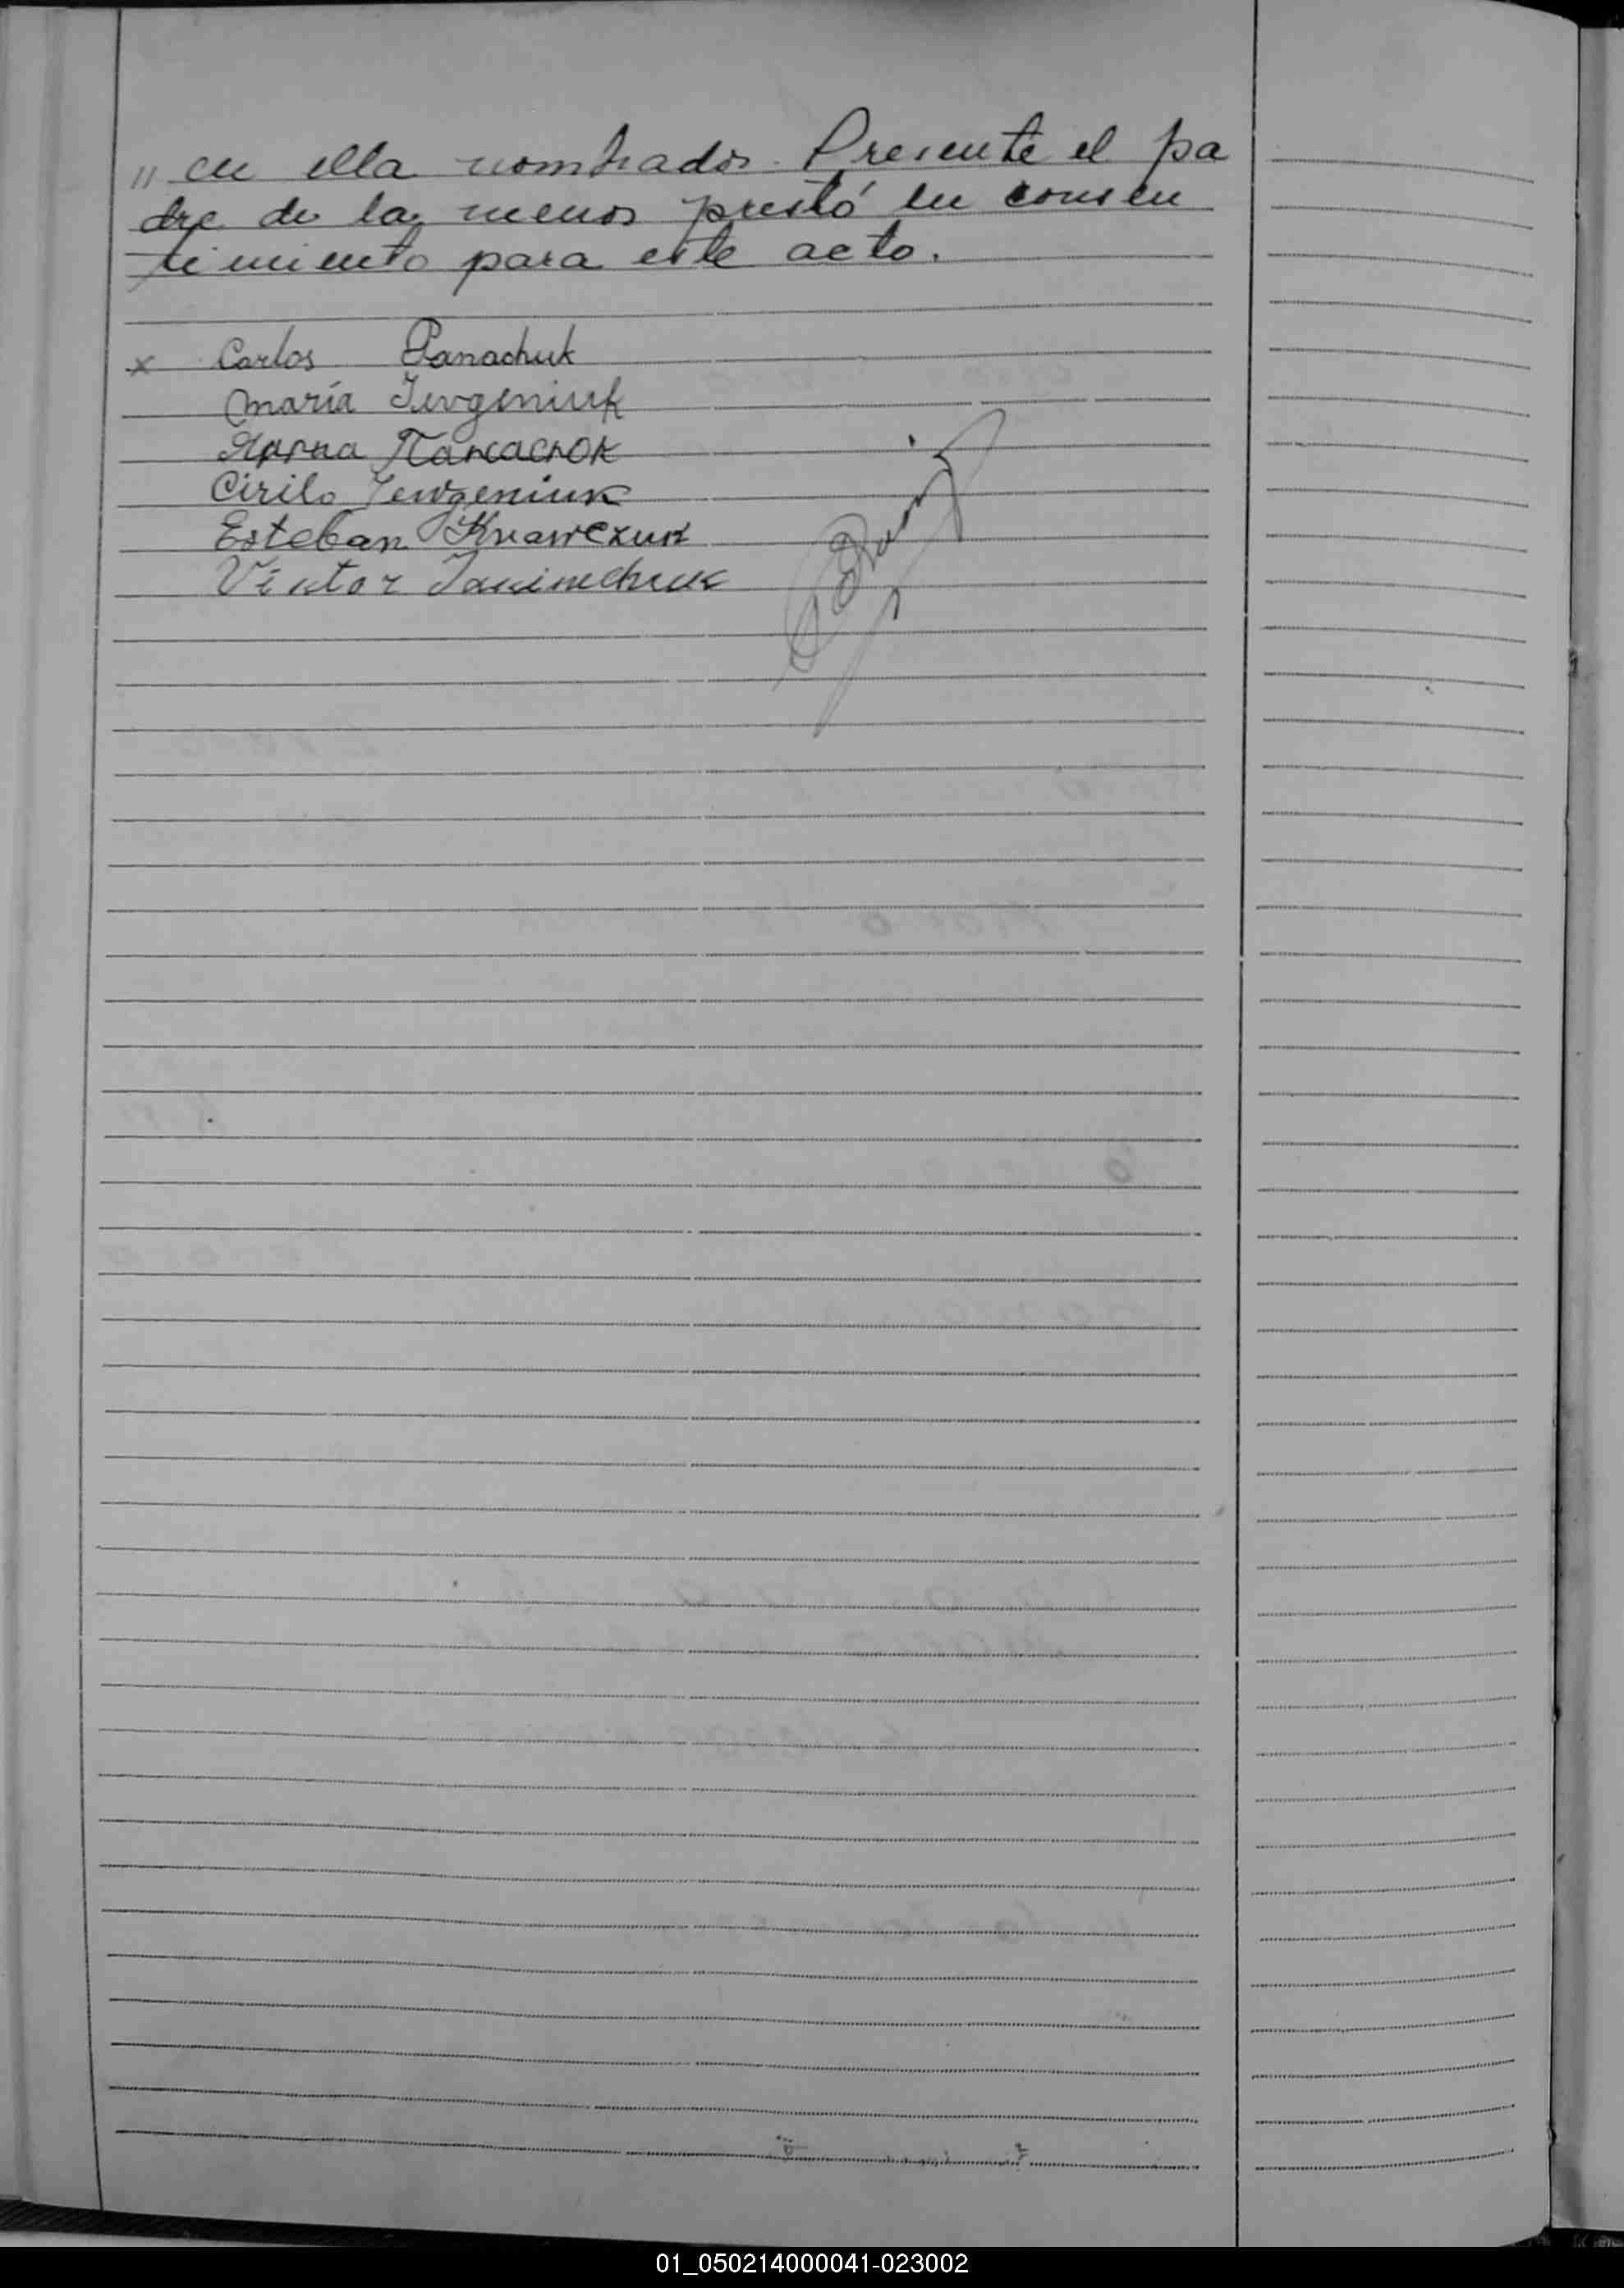 " en ella nombrados. Presente el pa
dre de la menor prestó su consen
timiento para este acto.
x Carlos Panachuk
María Iewgeniuk
Панасюк
Cirilo Jewgeniuk
Esteban Krawczuk
Viktor Jakimchuk
01_050214000041-023002